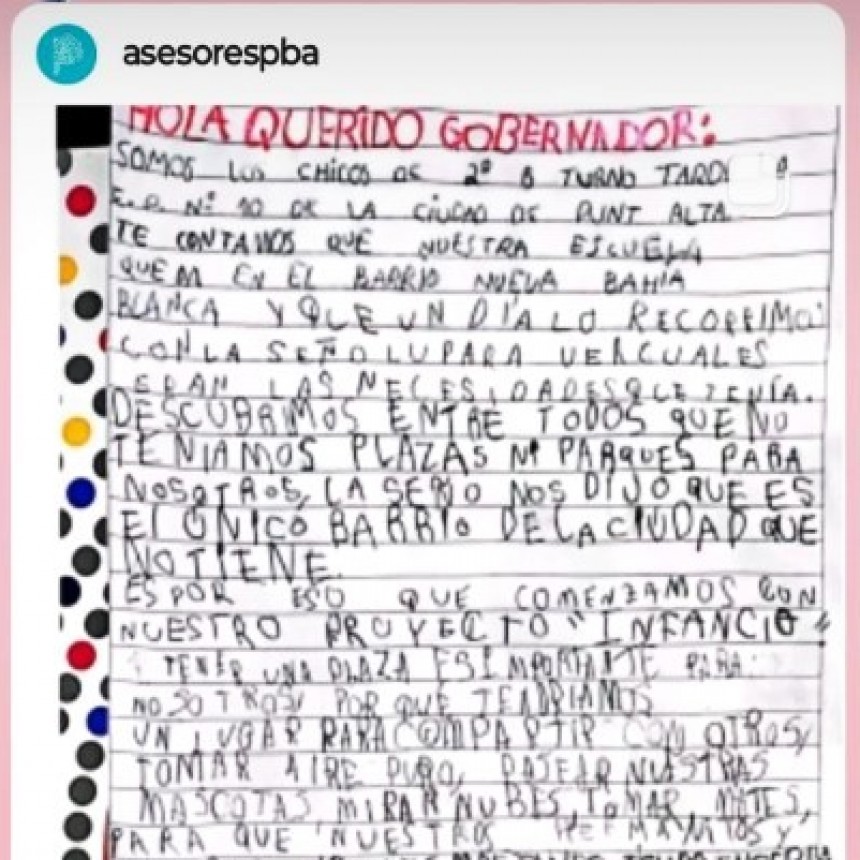 asesorespba
HOLA QUERIDO GOBERNADOR:
SOMOS LOS CHICOS DE 2º B TURNO TARD
E.P. Nº 10 DE LA CIUDAD DE PUNT ALTA
TE CONTAMOS QUE NUESTRA ESCUELA
QUEM EN EL BARRIO NUEVA BAHIA
BLANCA Y QUE UN DÍA LO RECORRIMO
CON LA SEÑO LU PARA VER CUALES
ERAN LAS NECESIDADES QUE TENÍA.
DESCUBRIMOS ENTRE TODOS QUE NO
TENIAMOS PLAZAS NI PARQUES PARA
NOSOTROS, LA SEÑO NOS DIJO QUE ES
EL ÚNICO BARRIO DE LA CIUDAD QUE
NO TIENE.
ES POR ESO QUE COMENZAMOS CON
NUESTRO PROYECTO "INFANCIO"
TENER UNA PLAZA ES IMPORTANTE PARA
NOSOTROS, POR QUE TENDRIAMOS
UN LUGAR PARA COMPARTIR CON OTROS,
TOMAR AIRE PURO, PASEAR NUESTRAS
MASCOTAS, MIRAR NUBES, TOMAR MATES,
PARA QUE NUESTROS HERMANITOS Y